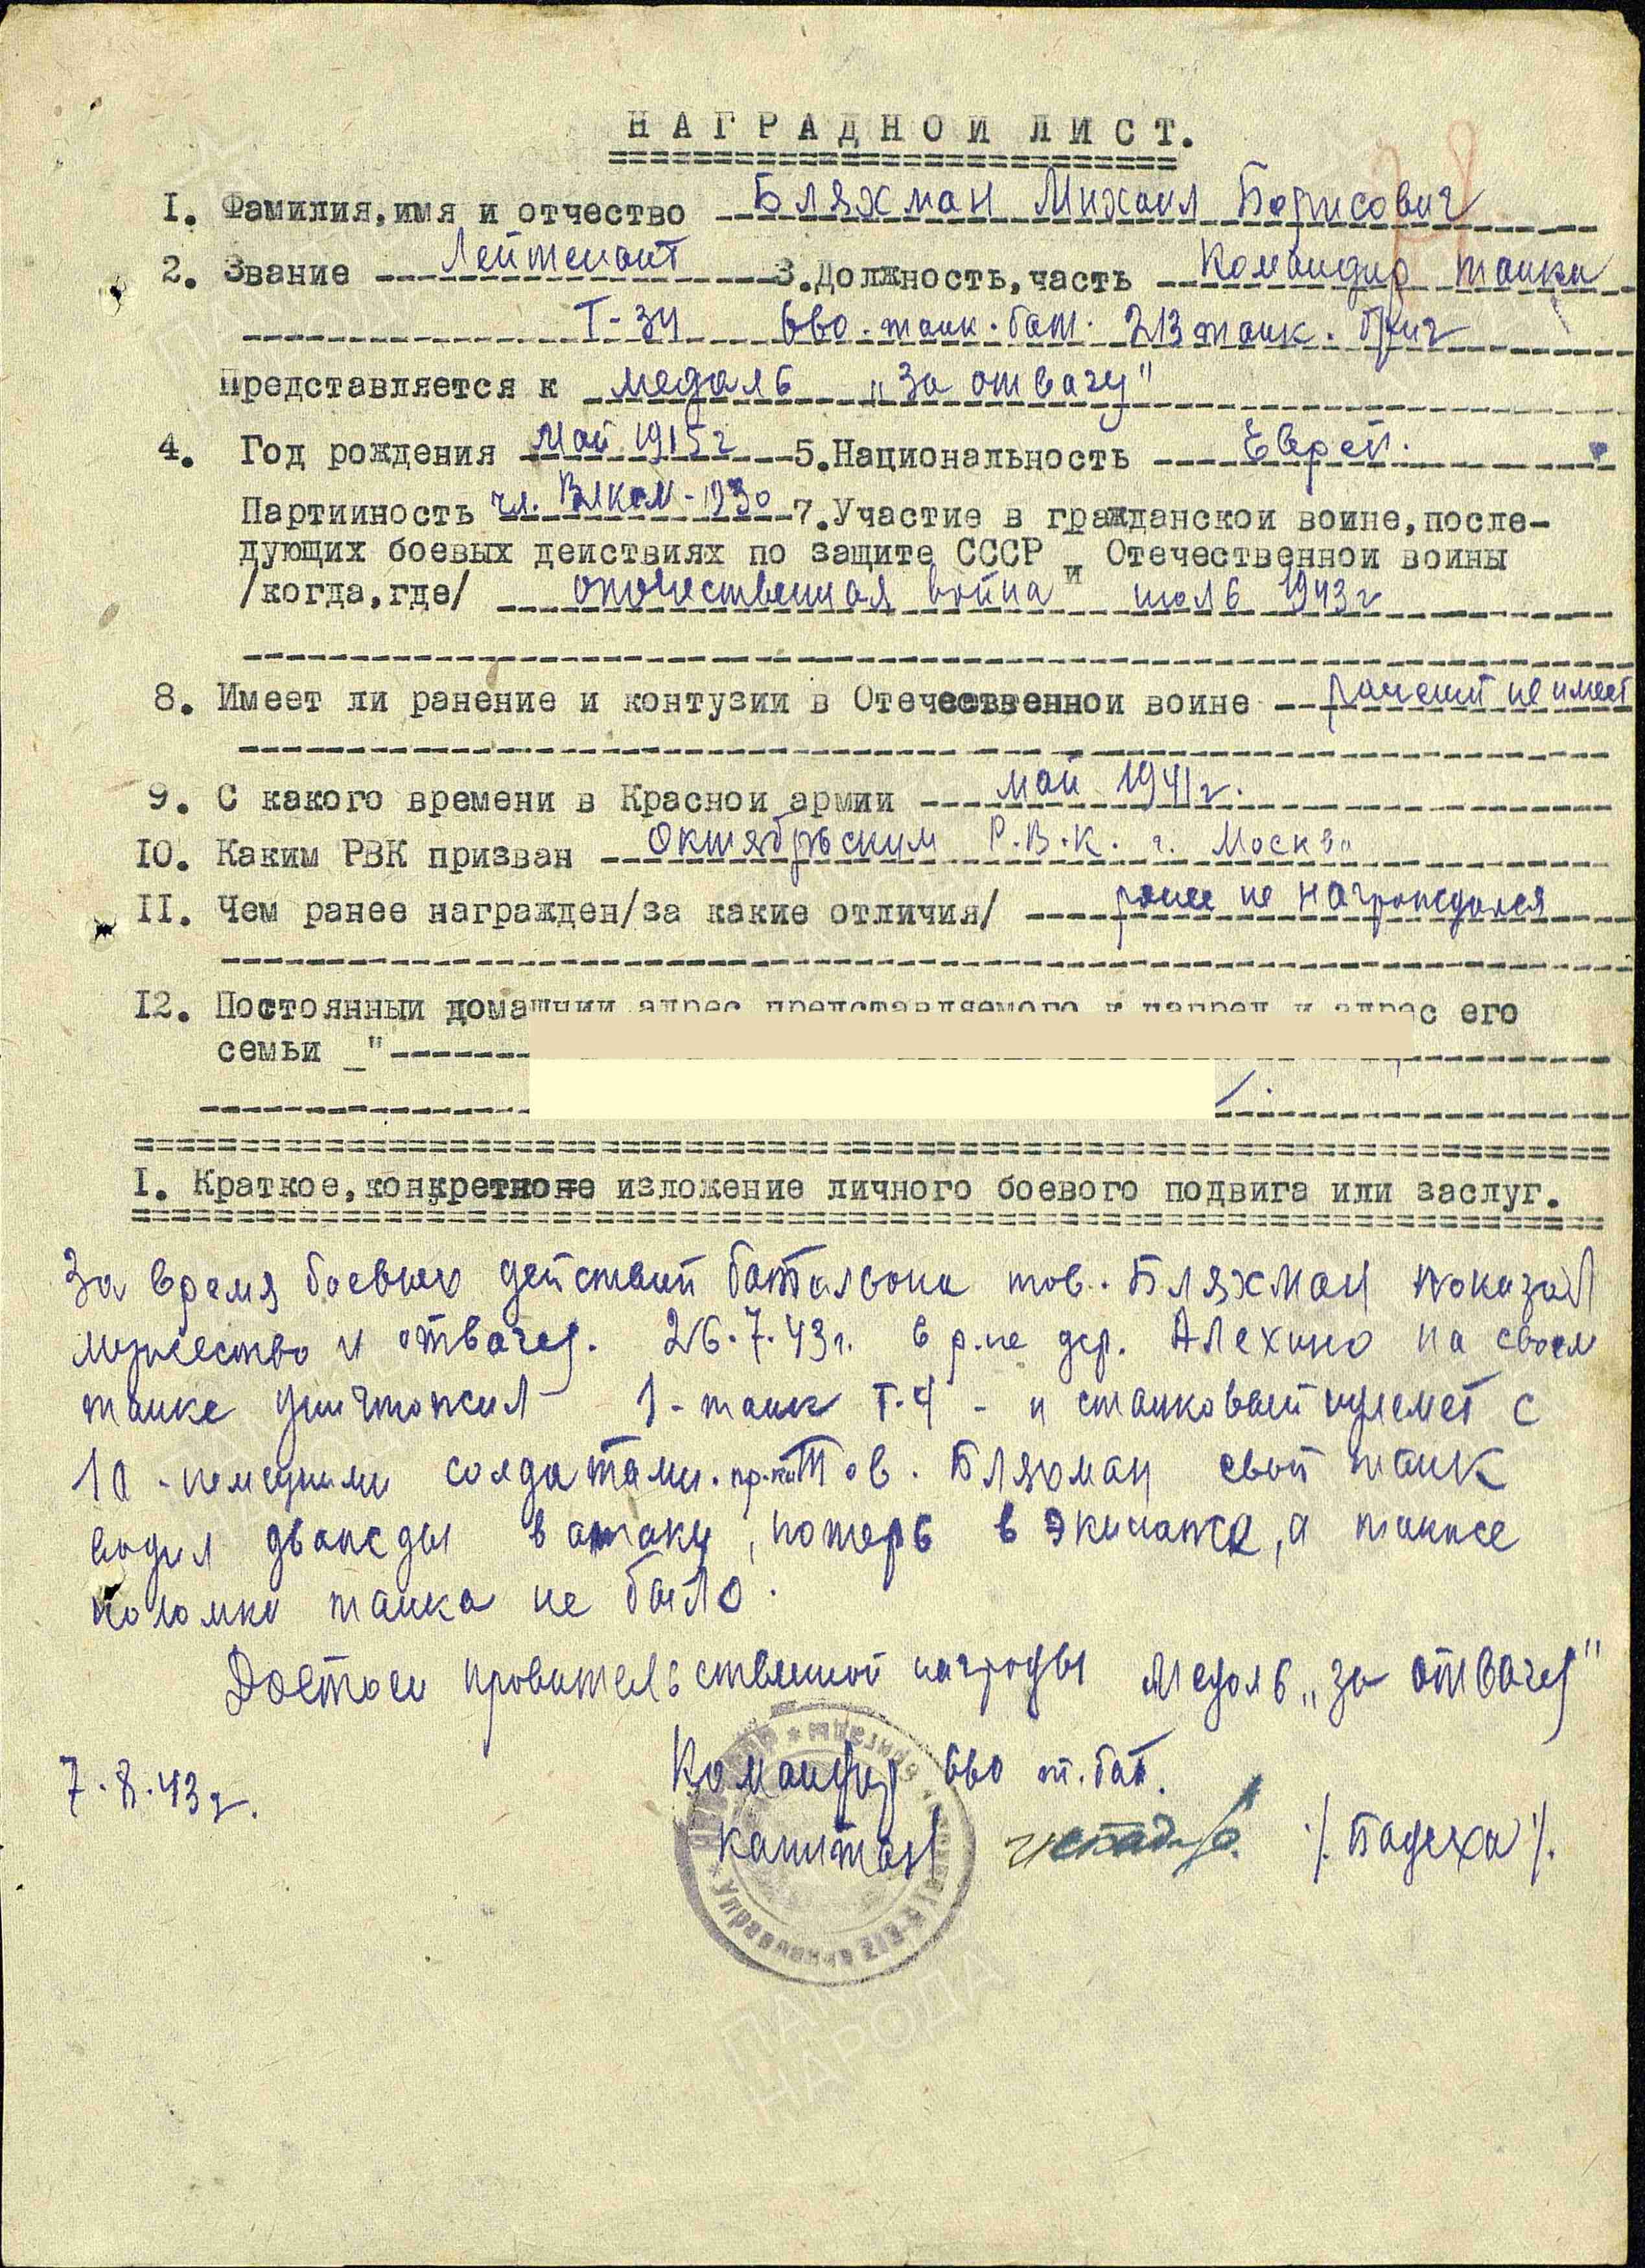 НАГРАДНОЙ ЛИСТ.
I. Фамилия, имя и отчество Бляхман Михаил Борисович
2. Звание Лейтенант 3. Должность, часть Командир танка
Т-34 660. танк. бат. 213 танк. бриг
Представляется к медаль "За отвагу"
4. Год рождения Май 1915 г 5. Национальность Еврей.
Партийность чл. ВЛКСМ - 1930 7. Участие в гражданской войне, после-
дующих боевых действиях по защите СССР и Отечественной войны
/когда, где/ отечественная война июль 1943 г
8. Имеет ли ранение и контузии в Отечественной войне ранений не имеет
9. С какого времени в Красной армии май 1941 г.
IO. Каким РВК призван Октябрьским Р.В.К. г. Москва
II. Чем ранее награжден/за какие отличия/ ранее не награждался
I2. Постоянный домашний адрес представляемого к наград. и адрес его
семьи "
I. Краткое, конкретное изложение личного боевого подвига или заслуг.
За время боевых действий батальона тов. Бляхман показал
мужество и отвагу. 26.7.43 г. в р-не дер. Алехино на своем
танке уничтожил 1-танк Т-4 - и станковый пулемет с
10 - немецкими солдатами. пр-ка Тов. Бляхман свой танк
водил дважды в атаку, потерь в экипаже, а также
поломки танка не было.
Достоен правительственной награды медаль "за отвагу"
7.8.43 г.
Командир 660 т. бат.
капитан /Бадеха/.
Управление 213-й
ПАМЯТЬ
НАРОДА